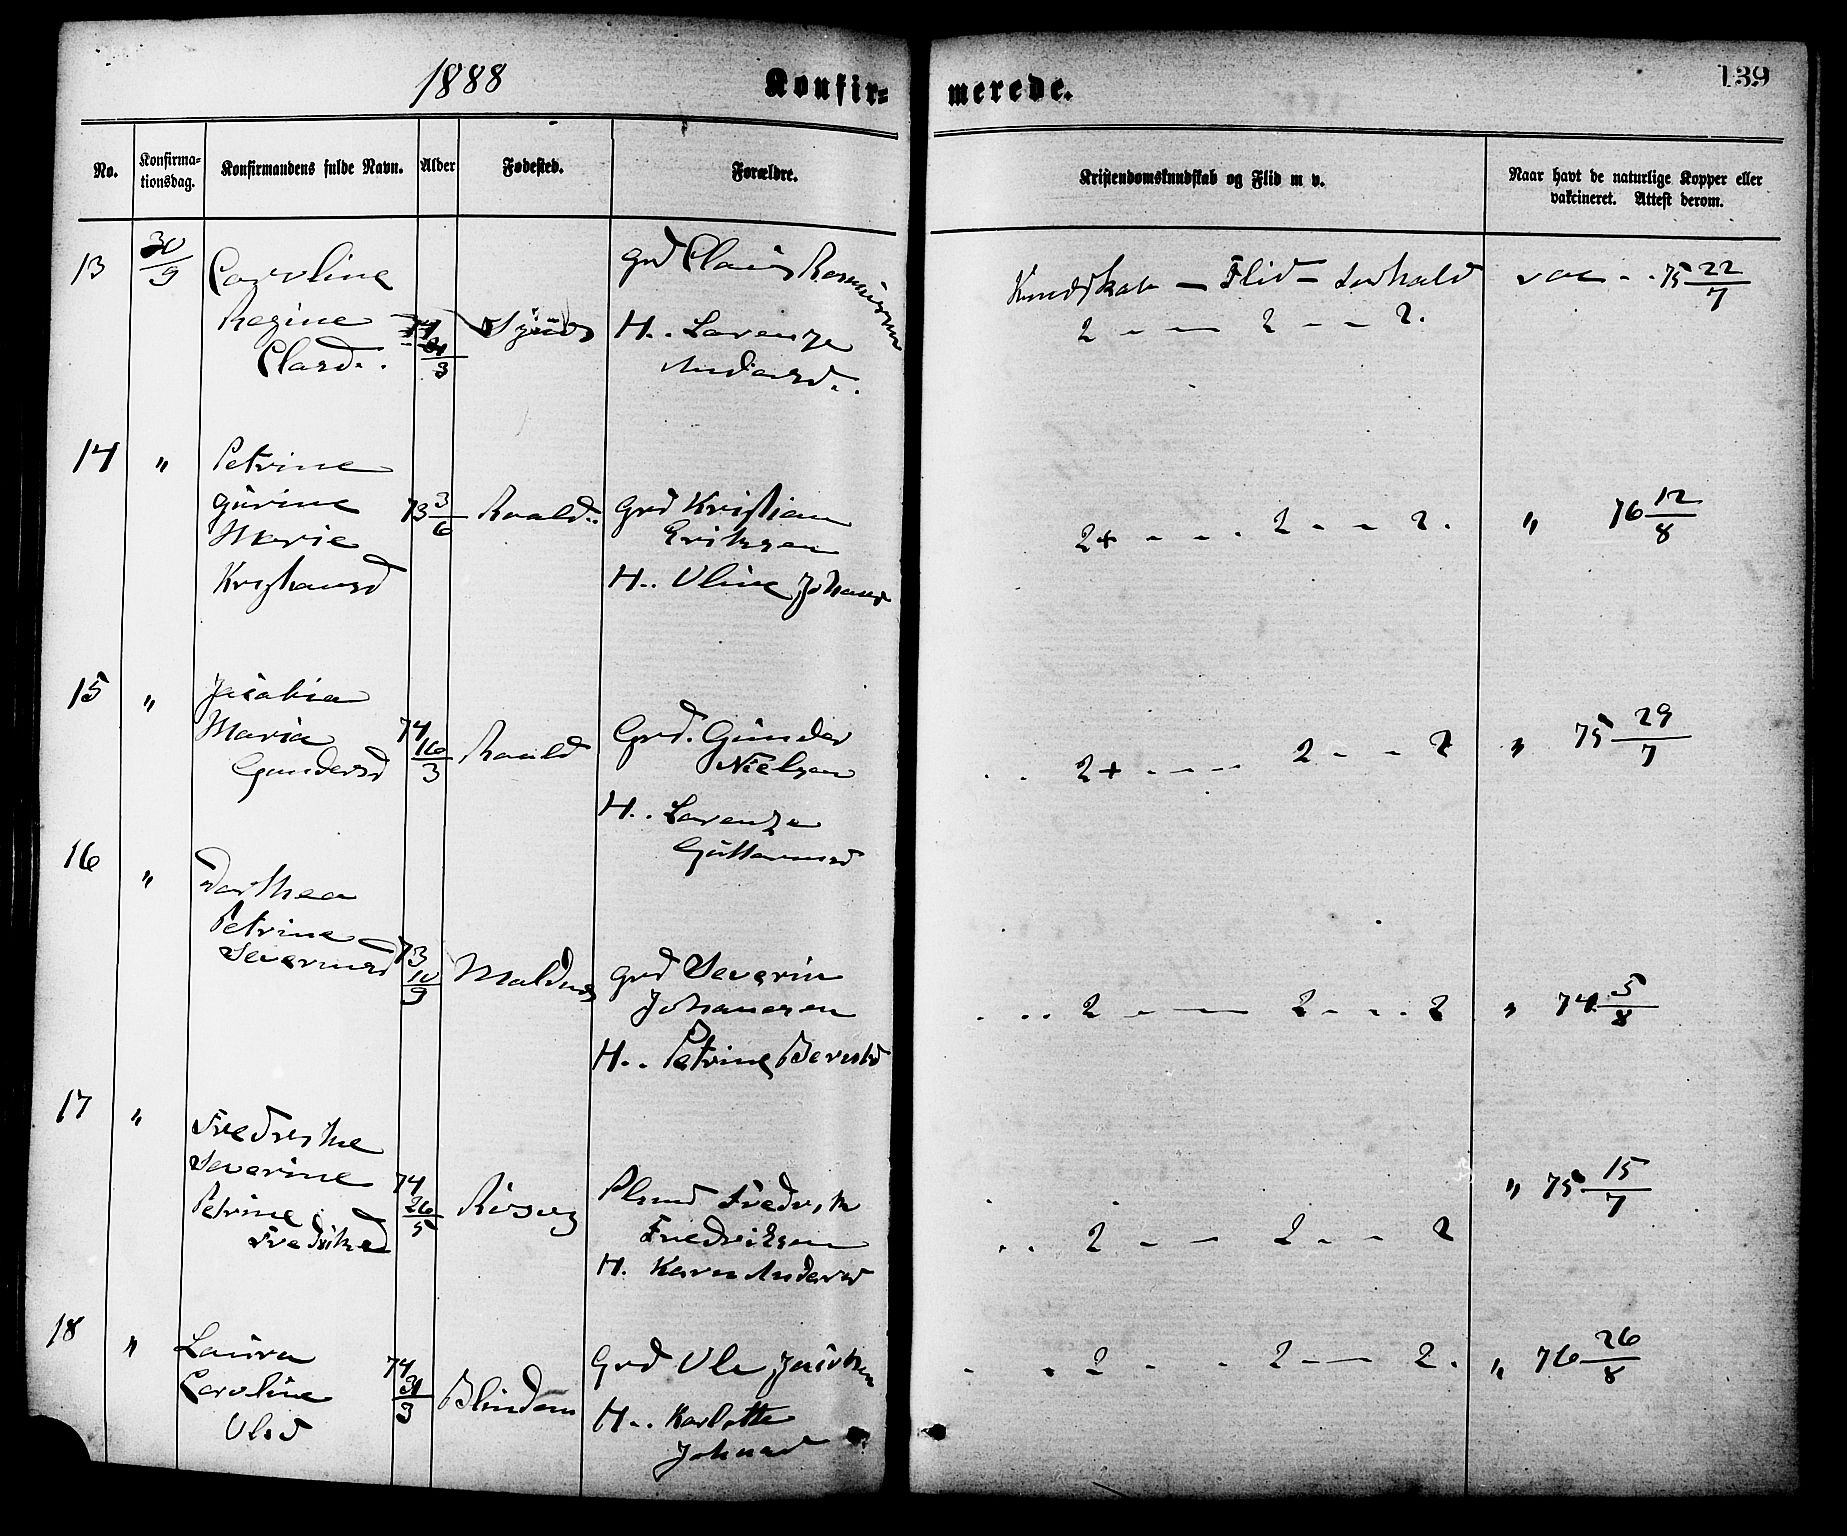 1888 Konfir= merede. 139
No. Konfirma-tionsdag. Konfirmandens fulde Navn. Alder Fødested. Forældre. Kristendomskundskab og Flid m v. Naar havt de naturlige Kopper eller vakcineret. Attest derom.
13 30/9 Caroline
Regine
Clasd.
74 31/3
Grd Claus Rasmussen
H.. Lorenze
Andersd..
Kundskab — Flid — Forhold
2 - — 2 - - 2.
vac - - 75 22/7
14 " Petrine
Gurine
Marie
Kristiansd
73 3/6 Roald..
Grd Kristian
Eriksen
H.. Oline Johansd
2+ - - . 2 - - 2. " 76 12/8
15 " Jacobia
Maria
Gundersd
74 16/3 Roald
Grd. Gunder
Nielsen
H.. Lorenze
Guttormsd
. . 2+ - - - — 2 - - 2 " 75 29/7
16 " Dorthea
Petrine
Severinsd
73 10/9 Maldnes
Grd Severin
Johansen
H.. Petrine Berntsd
. . . 2 - — 2 - - . 2 " 74 5/8
17 " Fredrikke
Severine
Petrine
Fredriksd
74 26/5 Risøy
Plsmd Fredrik
Fredriksen
H. Karen Andersd
. . 2 - — 2 - - 2 " 75 15/7
18 " Laura
Caroline
Olsd
74 31/3 Blindem
Grd Ole Jacobsen
H.. Karlotte
Johnsd
. . 2 - . . 2 - — 2. " 76 26/8